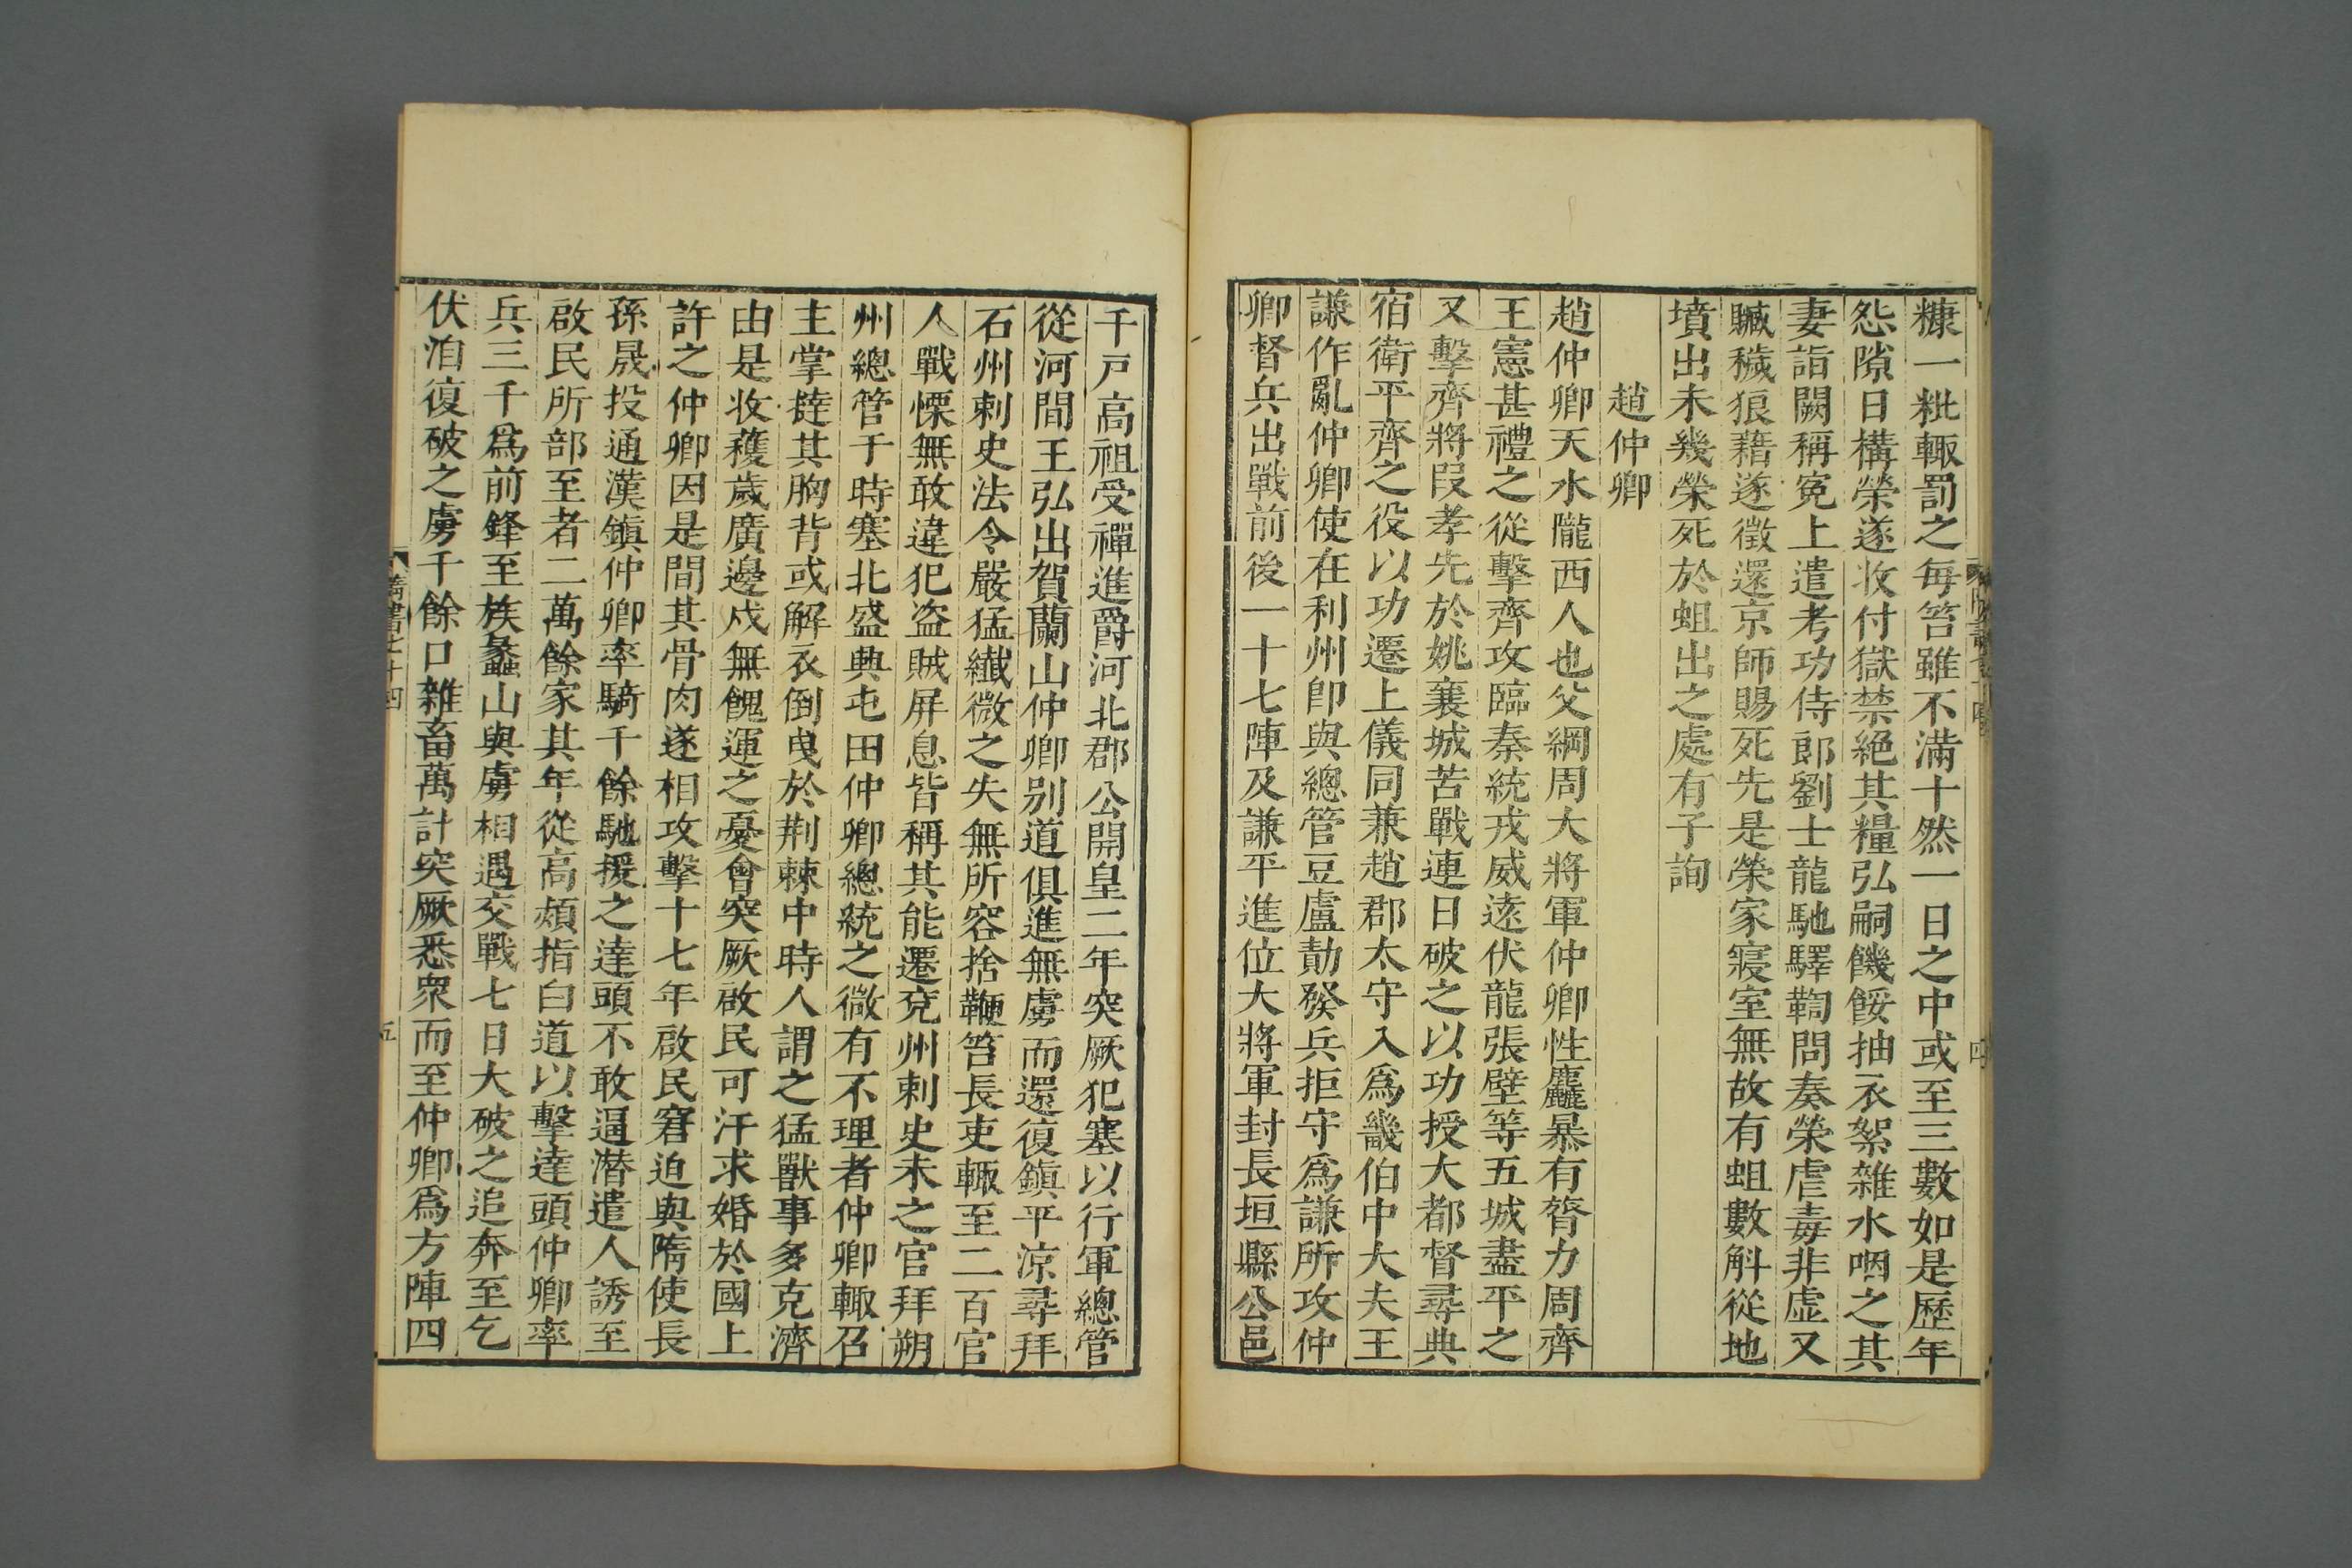 糠一粃輒罰之每笞雖不滿十然一日之中或至三數如是歷年
怨隙日構榮遂收付獄禁絕其糧弘嗣饑餒抽衣絮雜水咽之其
妻詣闕稱寃上遣考功侍郎劉士龍馳驛鞫問奏榮虐毒非虛又
贓穢狼藉遂徵還京師賜死先是榮家寢室無故有蛆數斛從地
墳出未幾榮死於蛆出之處有子詢
趙仲卿
趙仲卿天水隴西人也父綱周大將軍仲卿性麤暴有膂力周齊
王憲甚禮之從擊齊攻臨秦統戎威遠伏龍張壁等五城盡平之
又擊齊將叚孝先於姚襄城苦戰連日破之以功授大都督尋典
宿衛平齊之役以功遷上儀同兼趙郡太守入爲畿伯中大夫王
謙作亂仲卿使在利州卽與總管豆盧勣發兵拒守爲謙所攻仲
卿督兵出戰前後一十七陣及謙平進位大將軍封長垣縣公邑
千戸高祖受禪進爵河北郡公開皇二年突厥犯塞以行軍總管
從河間王弘出賀蘭山仲卿别道俱進無虜而還復鎭平凉尋拜
石州刺史法令嚴猛纎微之失無所容捨鞭笞長吏輒至二百官
人戰慄無敢違犯盗賊屏息皆稱其能遷兗州刺史未之官拜朔
州總管于時塞北盛興屯田仲卿總統之微有不理者仲卿輒召
主掌撻其胸背或解衣倒曳於荆棘中時人謂之猛獸事多克濟
由是收穫歲廣邊戍無餽運之憂會突厥啟民可汗求婚於國上
許之仲卿因是間其骨肉遂相攻擊十七年啟民窘迫與隋使長
孫晟投通漢鎭仲卿率騎千餘馳援之達頭不敢逼潜遣人誘至
啟民所部至者二萬餘家其年從高熲指白道以擊達頭仲卿率
兵三千爲前鋒至族蠡山與虜相遇交戰七日大破之追奔至乞
伏洎復破之虜千餘口雜畜萬計突厥悉衆而至仲卿爲方陣四
隋書七十四
五
四